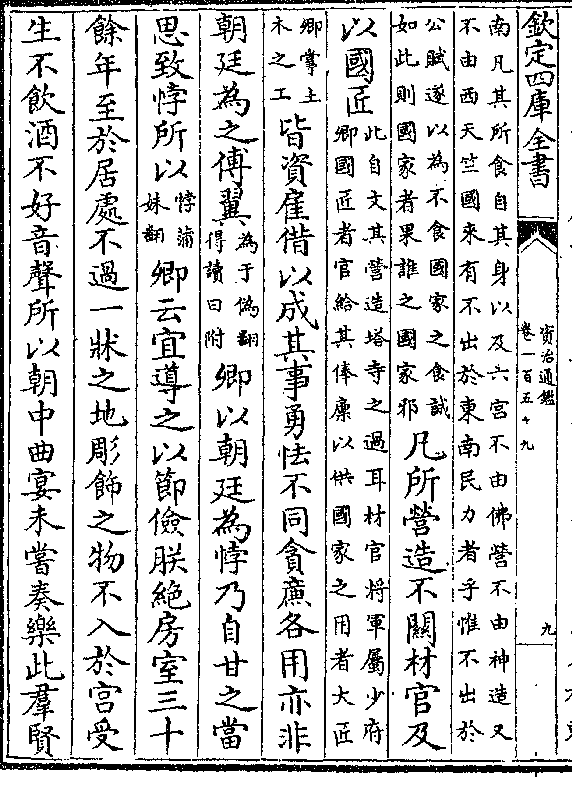 欽定四庫全書
資治通鑑
卷一百五十九
九
南凡其所食自其身以及六宫不由佛營不由神造又
不由西天竺國來有不出於東南民力者乎惟不出於
公賦遂以為不食國家之食誠
如此則國家者果誰之國家邪
凡所營造不關材官及
以國匠
此自文其營造塔寺之過耳材官將軍屬少府
卿國匠者官給其俸廩以供國家之用者大匠
卿掌主
木之工
皆資雇借以成其事勇怯不同貪廉各用亦非
朝廷為之傅翼
為于偽翻
得讀曰附
卿以朝廷為悖乃自甘之當
思致悖所以
悖蒲
妹翻
卿云宜導之以節儉朕絶房室三十
餘年至於居處不過一牀之地彫飾之物不入於宫受
生不飲酒不好音聲所以朝中曲宴未嘗奏樂此羣賢